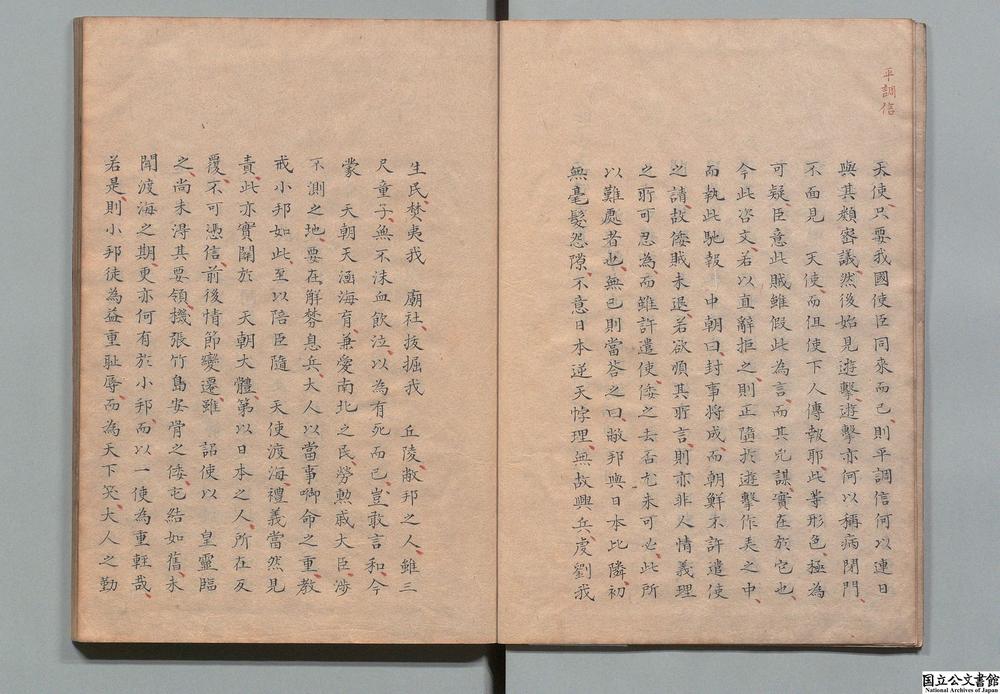 平調信
天使只要我國使臣同來而已則平調信何以連日
與其類密議然後始見遊擊遊擊亦何以稱病閉門
不面見 天使而但使下人傳報耶此等形色極為
可疑臣意此賊雖假此為言而其兇謀實在於它也
今此咨文若以直辭拒之則正墮於遊擊作美之中
而執此馳報 中朝曰封事將成而朝鮮不許遣使
之請故倭賊未退若欲順其所言則亦非人情義理
之所可忍為而雖許遣使倭之去否尤未可必此所
以難處者也無已則當答之曰敝邦與日本比隣初
無毫髮怨隙不意日本逆天悖理無故興兵虔劉我
生民焚夷我 廟社拔掘我 丘陵敝邦之人雖三
尺童子無不沬血飲泣以為有死而已豈敢言和今
蒙 天朝天涵海育兼愛南北之民勞勲戚大臣涉
不測之地要在解棼息兵大人以當事啣命之重教
戒小邦如此至以陪臣隨 天使渡海禮義當然見
責此亦實關於 天朝大體第以日本之人所在反
覆不可憑信前後情節變遷雖 詔使以 皇靈臨
之尚未得其要領機張竹島安骨之倭屯結如舊未
聞渡海之期更亦何有於小邦而以一使為重輕哉
若是則小邦徒為益重耻辱而為天下笑大人之勤
国立公文書館
National Archives of Japan